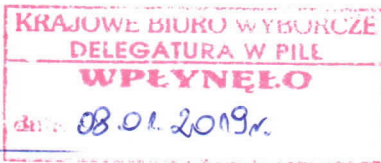 KRAJOWE BIURO WYBORCZE
DELEGATURA W PILE
WPŁYNĘŁO
dn. 08.01.2019r.